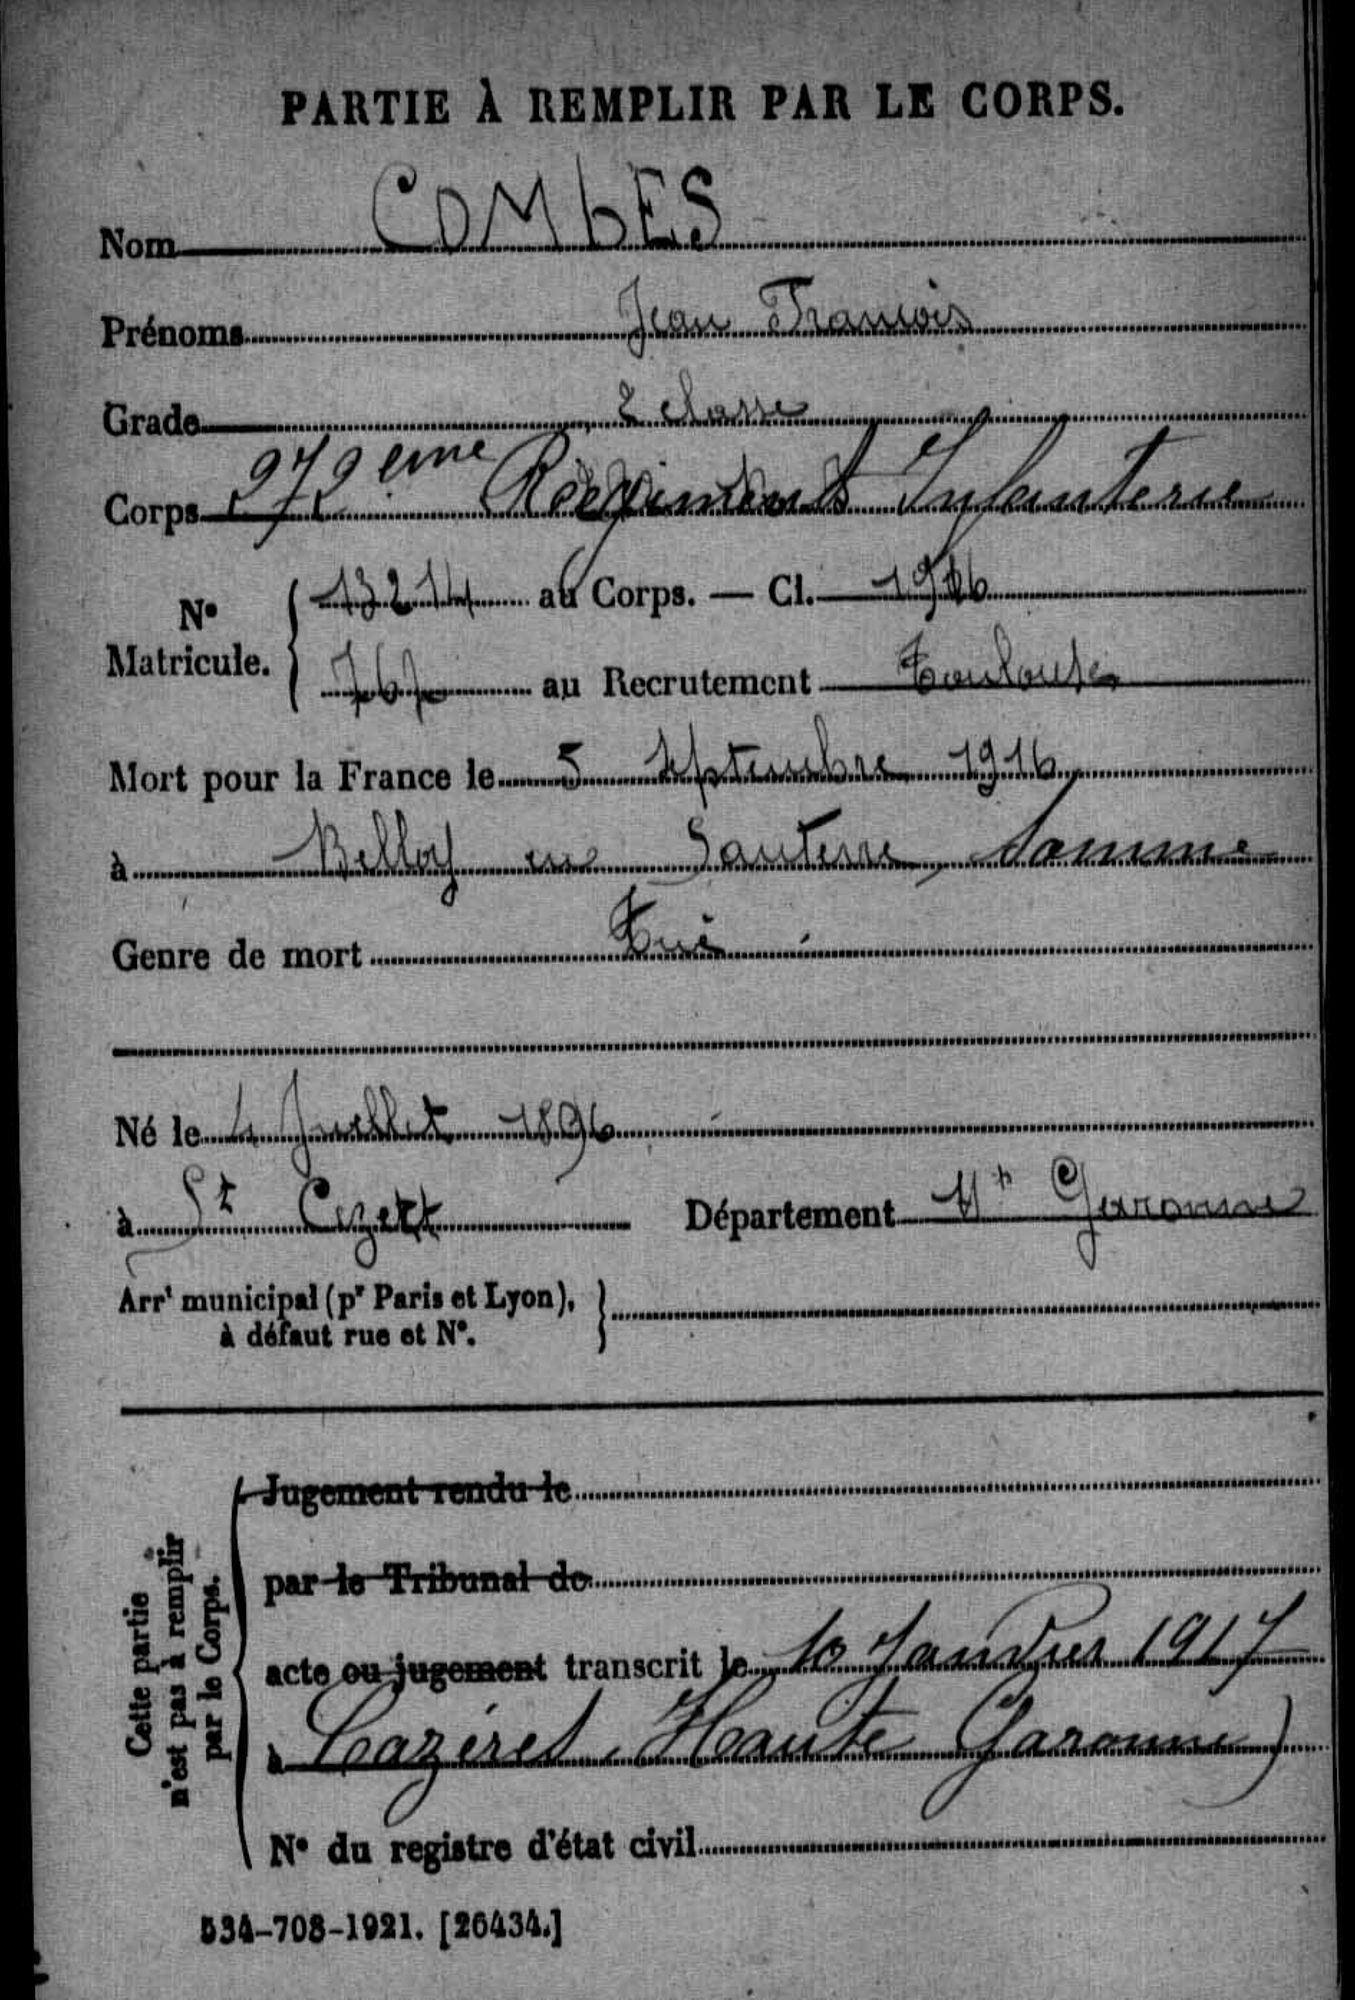 PARTIE À REMPLIR PAR LE CORPS.
Nom COMbES
Prénoms Jean François
Grade 2 classe
Corps 272eme Régiment Infanterie
N° Matricule. 13214 au Corps. — Cl. 1916
767 au Recrutement Toulouse
Mort pour la France le 5 Septembre 1916
à Belloy en Santerre, Somme
Genre de mort Tué
Né le 4 Juillet 1896
à St Cezert Département Hte Garonne
Arrt municipal (pr Paris et Lyon),
à défaut rue et N°.
Cette partie
n'est pas à remplir
par le Corps.
Jugement rendu le
par le Tribunal de
acte ou jugement transcrit le 10 Janvier 1917
à Cazères, Haute Garonne)
N° du registre d'état civil
534-708-1921. [26434.]